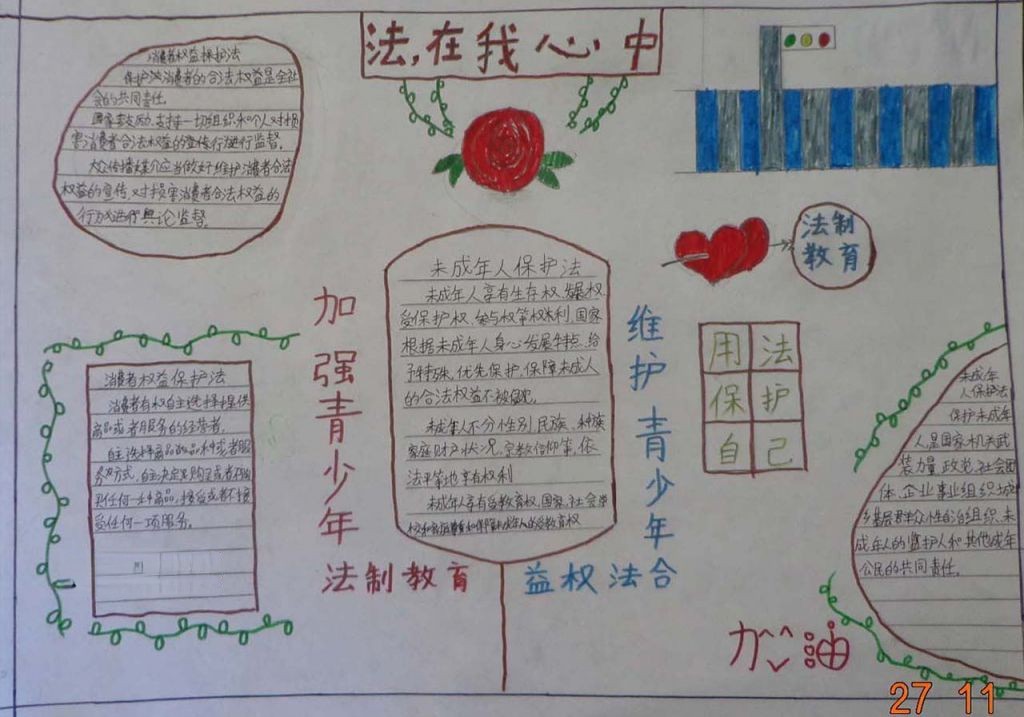 法,在我心中
消费者权益保护法
保护消费者的合法权益是全社
会的共同责任。
国家鼓励、支持一切组织和个人对损
害消费者合法权益的
行为进行监督。
大众传播媒介应当做好维护消费者合法
权益的宣传,对损害消费者合法权益的
行为进行舆论监督。
法制
教育
未成年人保护法
未成年人享有生存权、发展权、
受保护权、参与权等权利,国家
根据未成年人身心发展特点,给
予特殊、优先保护,保障未成人
的合法权益不被侵犯。
未成年人不分性别、民族、种族、
家庭财产状况、宗教信仰等,依
法平等地享有权利
未成年人享有受教育权,国家、社会、学
校和家庭尊重和保障未成年人的受教育权
加强青少年
法制教育
维护青少年
益权法合
用法
保护
自己
消费者权益保护法
消费者有权自主选择提供
商品或者服务的经营者,
自主选择商品品种或者服
务方式,自主决定购买或者不购
买任何一种商品,接受或者不接
受任何一项服务。
未成年
人保护法
保护未成年
人,是国家机关、武
装力量、政党、社会团
体、企业事业组织、城
乡基层群众性自治组织、未
成年人的监护人和其他成年
公民的共同责任。
加油
27 11